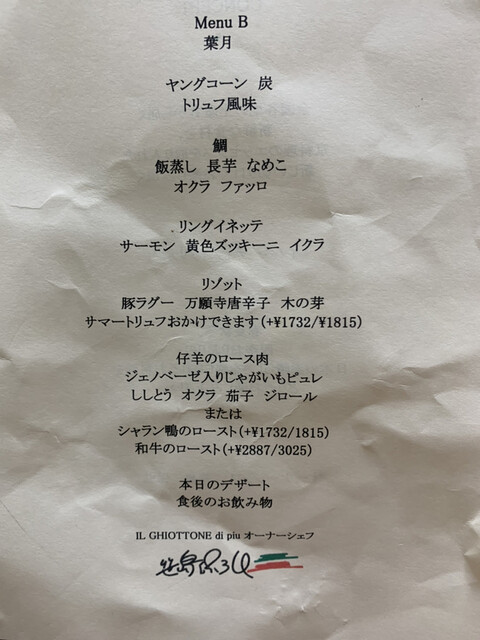 Menu B
葉月
ヤングコーン 炭
トリュフ風味
鯛
飯蒸し 長芋 なめこ
オクラ ファッロ
リングイネッテ
サーモン 黄色ズッキーニ イクラ
リゾット
豚ラグー 万願寺唐辛子 木の芽
サマートリュフおかけできます(+¥1732/¥1815)
仔羊のロース肉
ジェノベーゼ入りじゃがいもピュレ
ししとう オクラ 茄子 ジロール
または
シャラン鴨のロースト(+¥1732/1815)
和牛のロースト(+¥2887/3025)
本日のデザート
食後のお飲み物
IL GHIOTTONE di piu オーナーシェフ